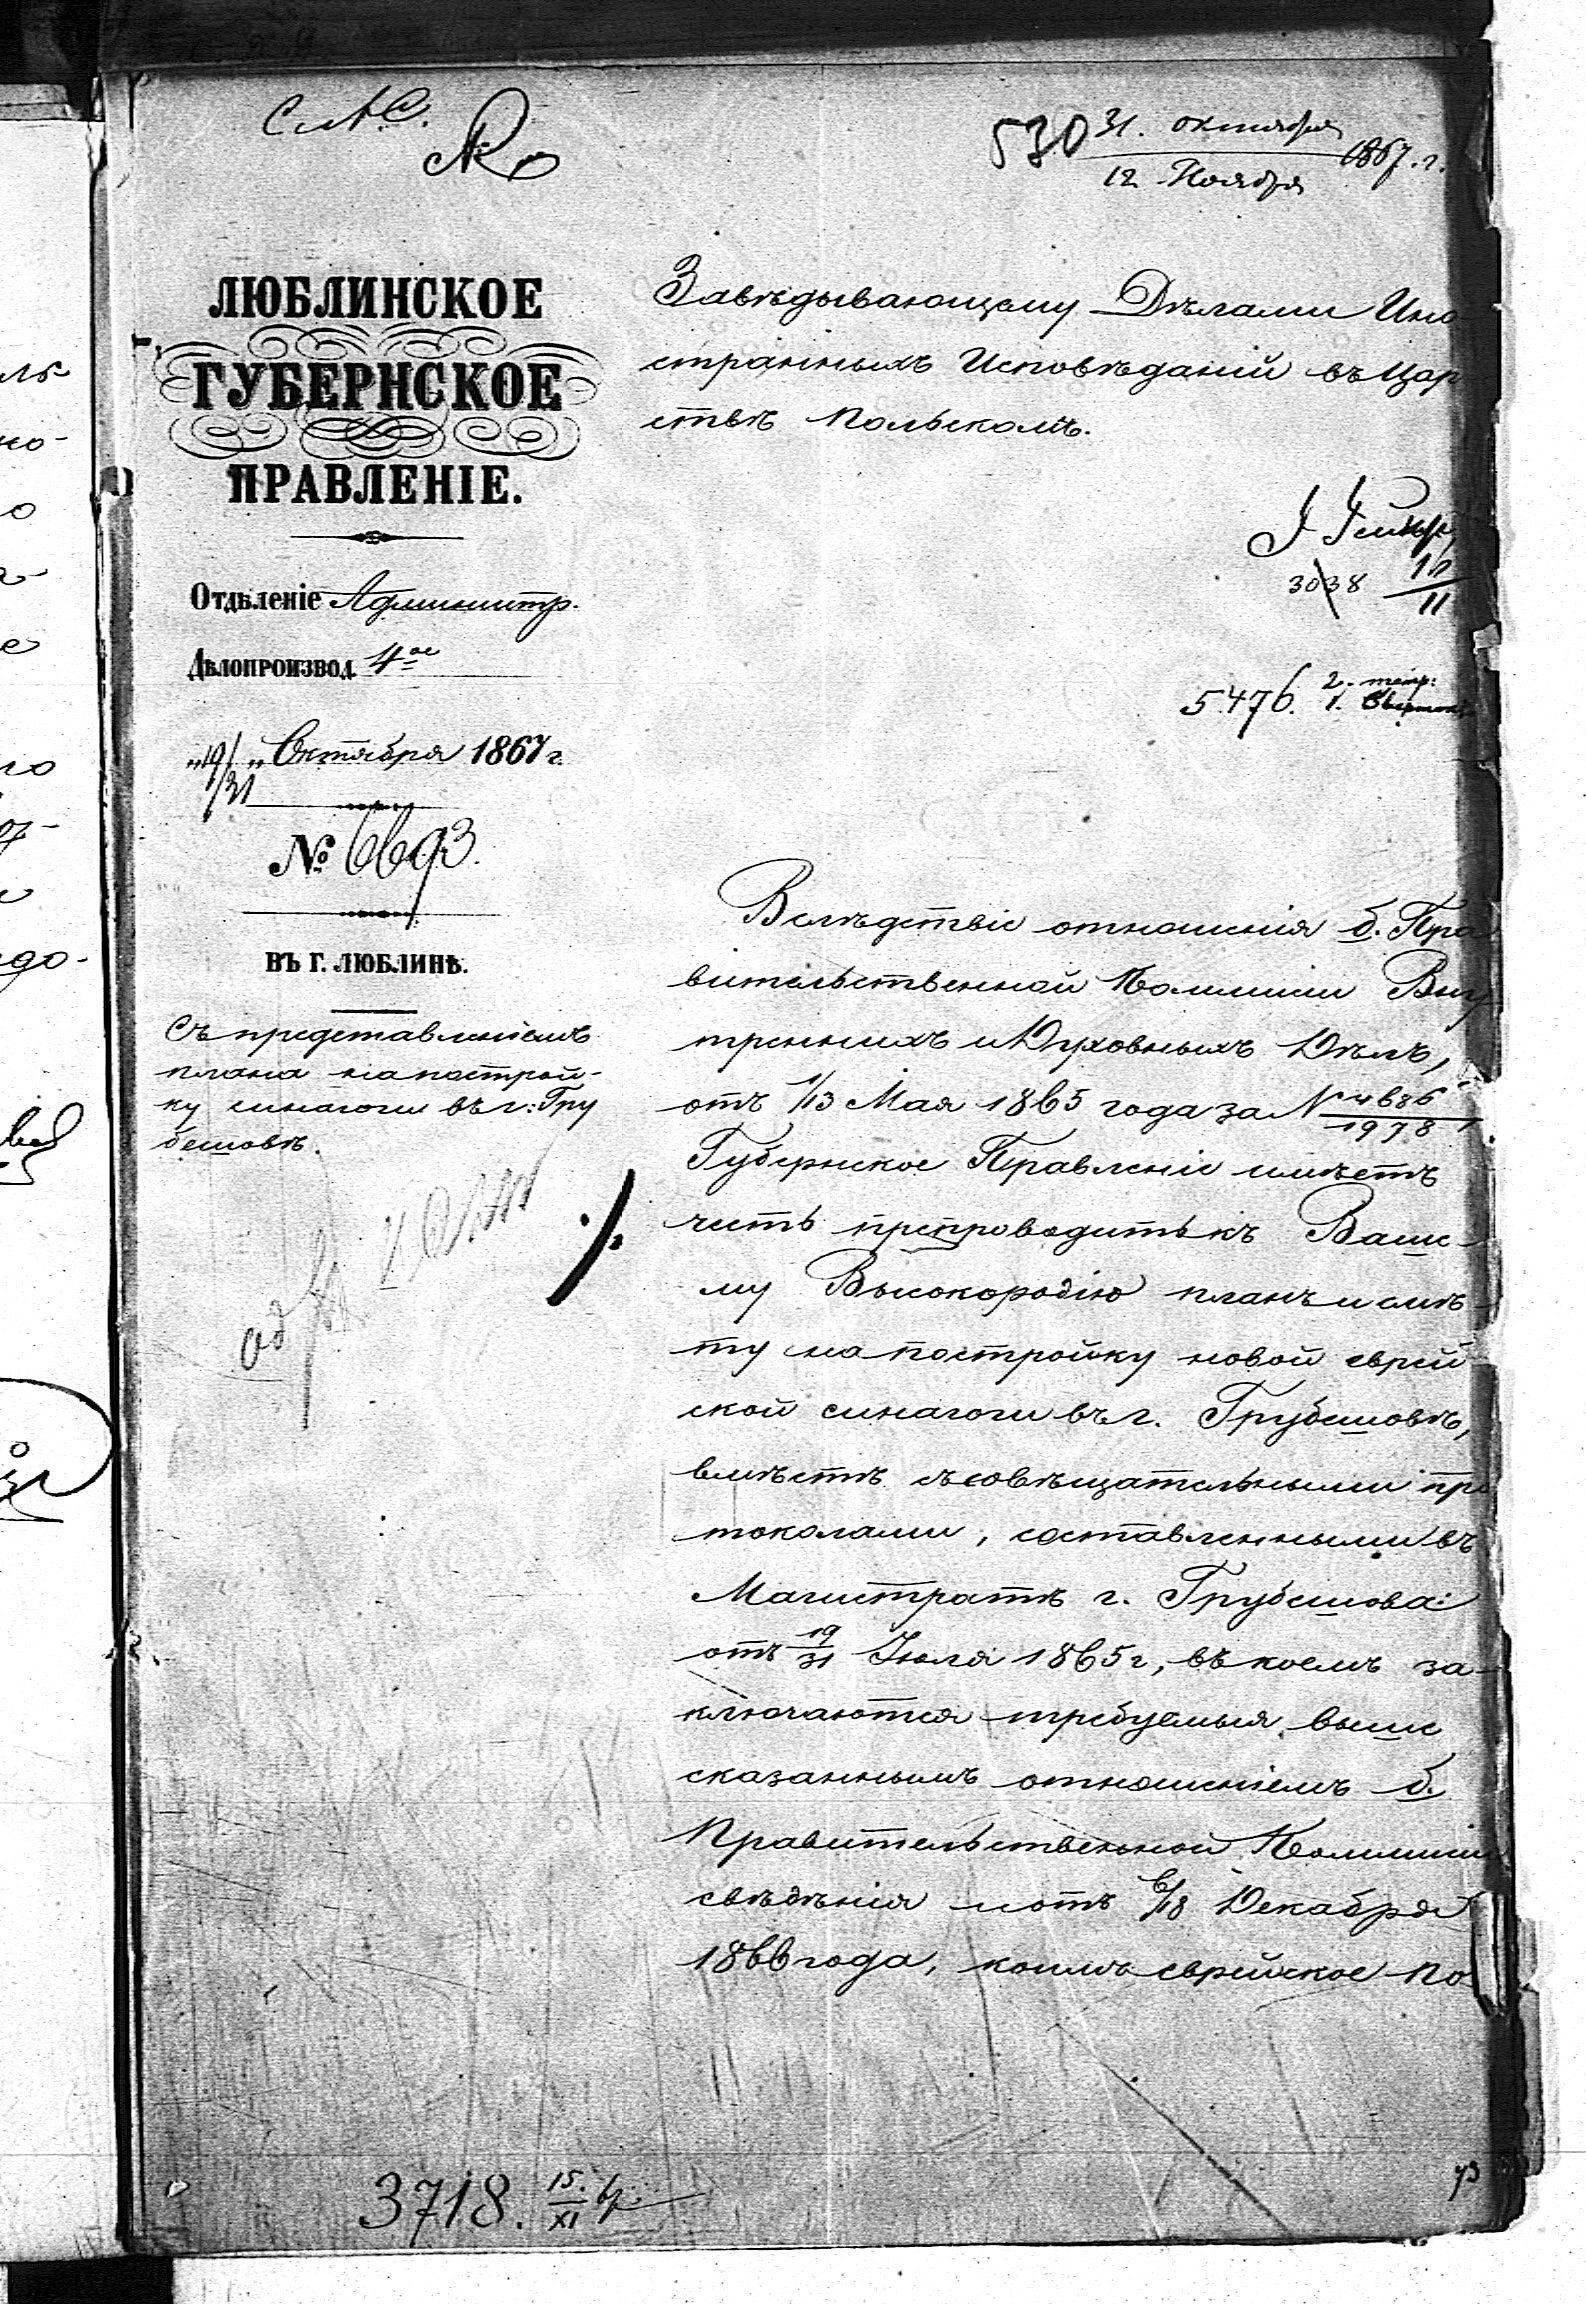 530 31. октября
12 Ноября 1867. г.
ЛЮБЛИНСКОЕ
ГУБЕРНСКОЕ
ПРАВЛЕНІЕ.
Отдѣленіе Администр.
Дѣлопроизвод. 4ое
„19/31„ Октября 1867 г.
№ 6693.
ВЪ Г. ЛЮБЛИНѢ.
Съ представленіемъ
плана на построй-
ку синагоги въ г: Гру
бешовѣ.
Завѣдывающему Дѣлами Ино
странныхъ Исповѣданій въ Цар
ствѣ Польскомъ.
3038 16/11
5476. 2.
1.
Вслѣдствіе отношенія б. Пра
вительственной Коммисіи Вну
треннихъ и Духовныхъ Дѣлъ,
отъ 1/13 Мая 1865 года за № 4686/1978
Губернское Правленіе имѣетъ
честь препроводить къ Ваше-
му Высокородію планъ и смѣ-
ту на постройку новой еврей-
ской синагоги въ г. Грубешовѣ,
вмѣстѣ съ совѣщательными про
токолами, составленными въ
Магистратѣ г. Грубешова:
отъ 19/31 Іюля 1865 г, въ коемъ за-
ключаются требуемыя выше
сказаннымъ отношеніемъ б.
Правительственной Коммисіи
свѣдѣнія и отъ 6/18 Декабря
1866 года, коимъ еврейское по
3718. 15./XI
73